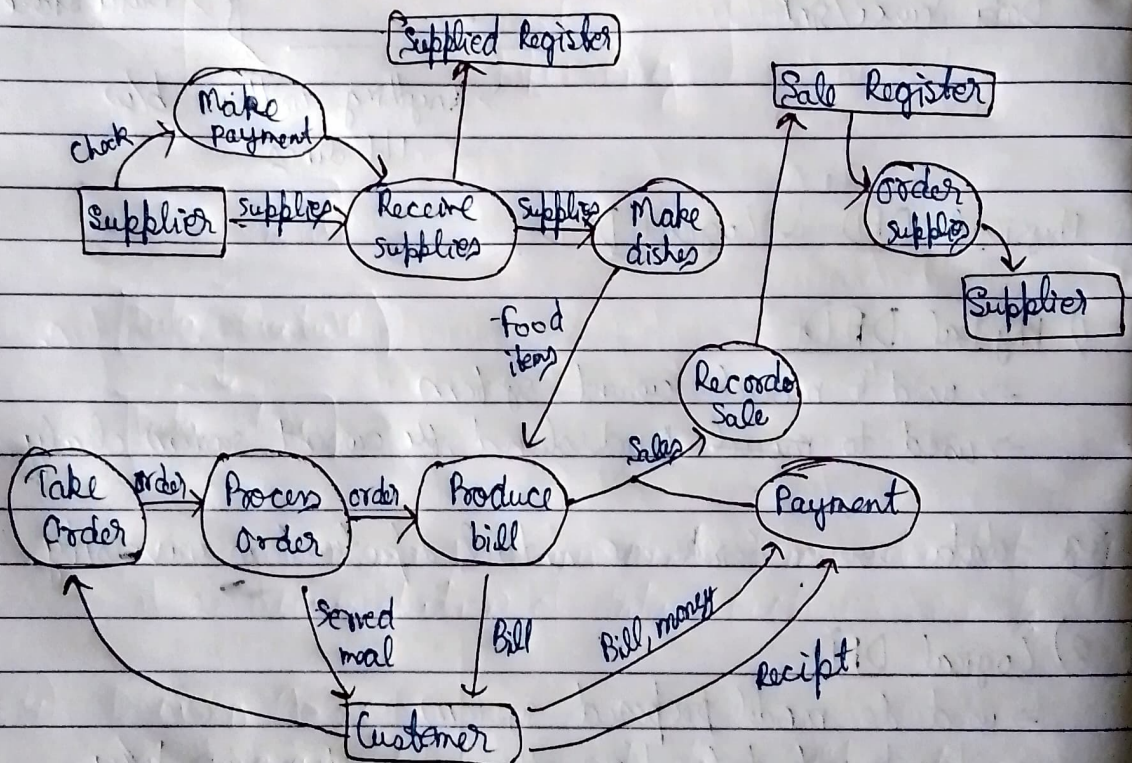 Supplied Register
Sale Register
Make
payment
Check
Supplier
supplies
Receive
supplies
Supplies
Make
dishes
Order
supplies
Supplier
food
items
Records
Sale
Sales
Take
Order
order
Process
Order
order
Produce
bill
Payment
Served
meal
Bill
Bill, money
Recipt
Customer